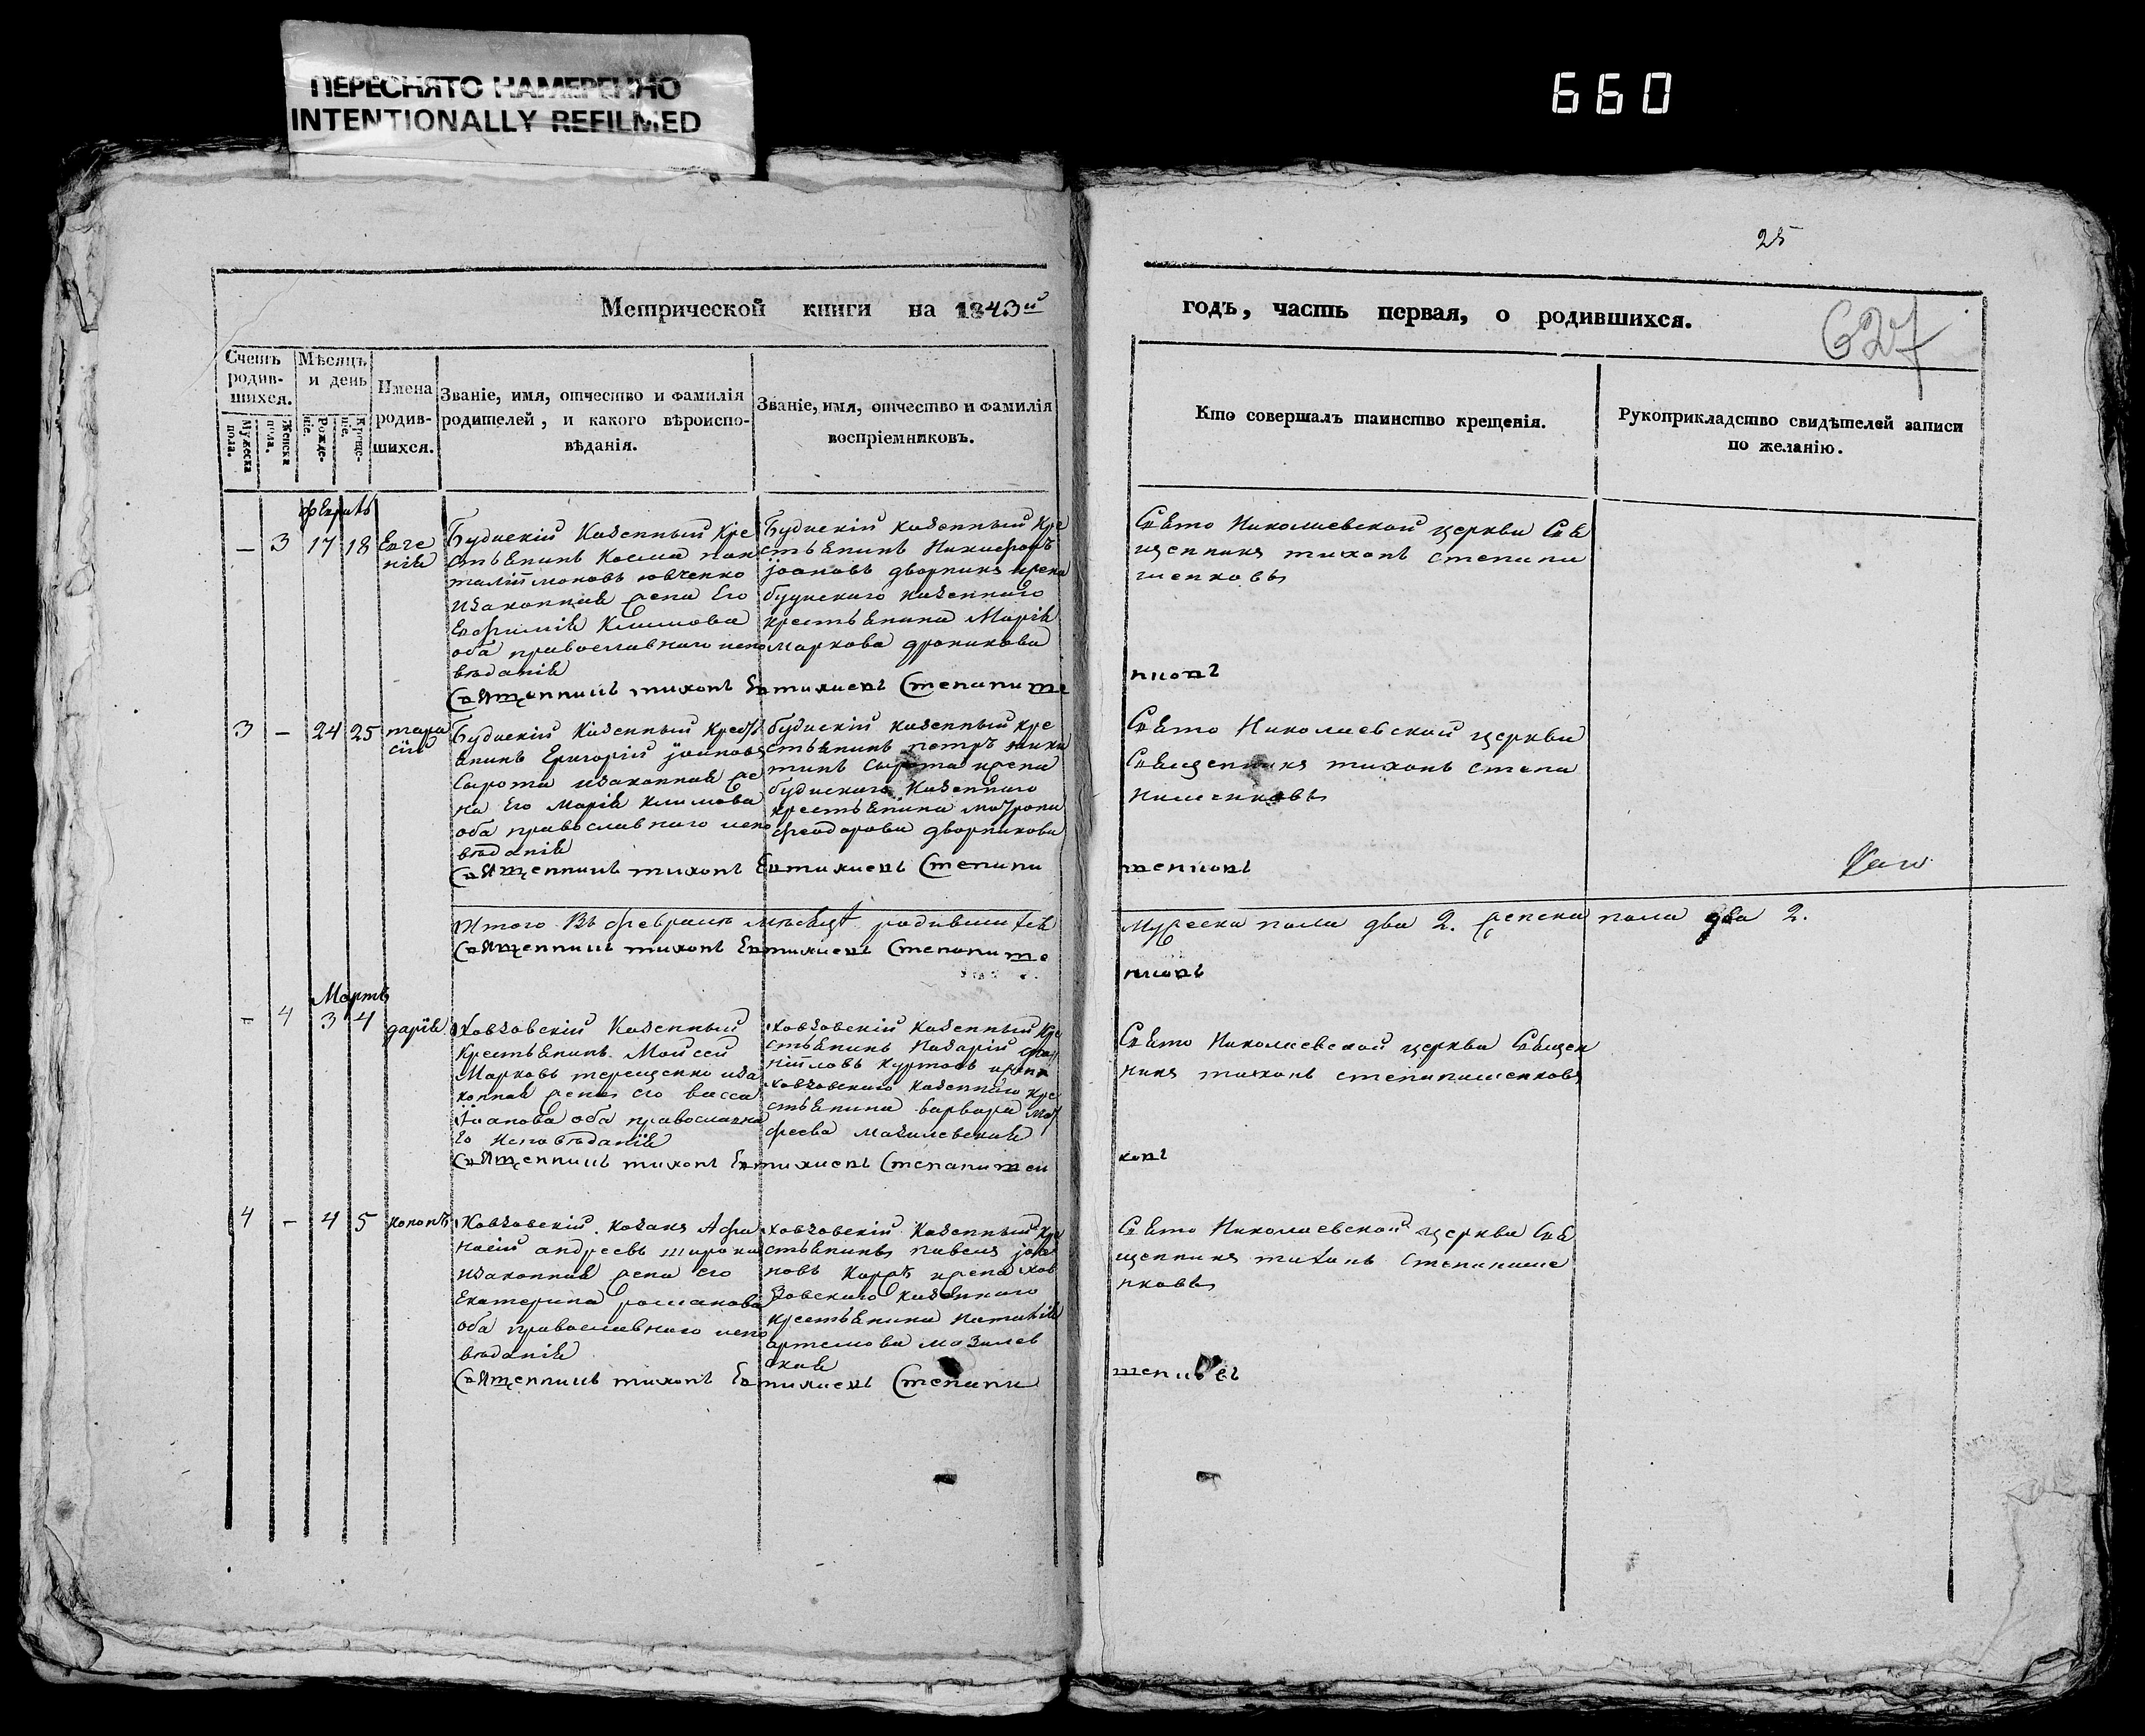 ПЕРЕСНЯТО НАМЕРЕННО
INTENTIONALLY REFILMED
660
25
627
Метрической книги на 1843й
годъ, часть первая, о родившихся.
Счетъ родив-шихся.
Мужеска пола.
Женска пола.
Мѣсяцъ и день
Рожде-ніе.
Креще-ніе.
Имена родив-шихся.
Званіе, имя, отчество и фамилія
родителей, и какого вѣроиспо-
вѣданія.
Званіе, имя, отчество и фамилія
воспріемниковъ.
Кто совершалъ таинство крещенія.
Рукоприкладство свидѣтелей записи
по желанію.
— 3 17 18 Евге
нія
Будискій Казенный Кре
стьянинъ Косма пан
жена Его
Евфимія Климова
оба православнаго испо
вѣданія
Будискій казенный Кре
стьянинъ Никифоръ
іоановъ дворникъ
будискаго казеннаго
крестьянина Марія
Маркова
Свято Николаевской церкви Свя
щенникъ тихонъ степани
шенковъ
Священникъ тихонъ Евтихиевъ Степанише
нковъ
3 — 24 25 тара
сій
Будискій Казенный Крест
янинъ Григорій іоановъ
Сирота изаконная же
на Его Марія климова
оба православнаго испо
вѣданія
будискій казенный кре
стьянинъ петръ ники
тинъ Сирота
будискаго казеннаго
крестьянина мотрона
феодорова дворникова
Свято Николаевской церкви
Священникъ тихонъ степа
нишенковъ
Священникъ тихонъ Евтихиевъ Степани
шенковъ
Итого Въ февралѣ мѣсяцѣ родившихся
Мужеска пола два 2. женска пола два 2.
Священникъ тихонъ Евтихиевъ Степанише
нковъ
Мартъ
— 4 3 4 дарія
Ковзовскій Казенный
Крестьянинъ Моисей
Марковъ терещенко иза
конная жена его васса
іоанова оба православна
го исповѣданія
Ковзовскій казенный Кре
стьянинъ Назарій
ковзовскаго казеннаго кре
стьянина варвара мат
феева
Свято Николаевской церкви Священ
никъ тихонъ степанишенковъ
Священникъ тихонъ Евтихиевъ Степанишен
ковъ
4 — 4 5 кононъ
Ковзовскій козакъ Афа
насій андреевъ
изаконная жена его
Екатерина романова
оба православнаго испо
вѣданія
ковзовскій Казенный Кре
стьянинъ павелъ іоа
новъ
зовскаго казеннаго
крестьянина Наталія
артемова
ская
Свято Николаевской церкви Свя
щенникъ тихонъ степанише
нковъ
Священникъ тихонъ Евтихиевъ Степани
шенковъ